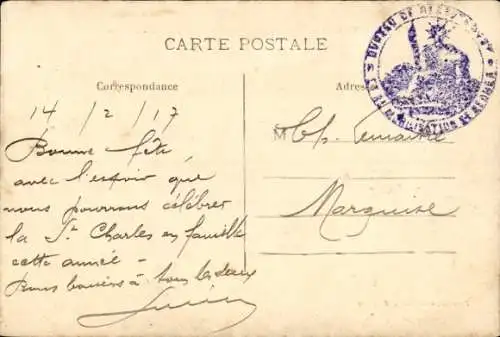 CARTE POSTALE
Correspondance
Adres
14 / 2 / 17
Bonne fête
avec l'espoir que
nous pourrons célébrer
la St Charles en famille
cette année -
Bons baisers à tous les deux
M Ch. Lemaitre
Marquise